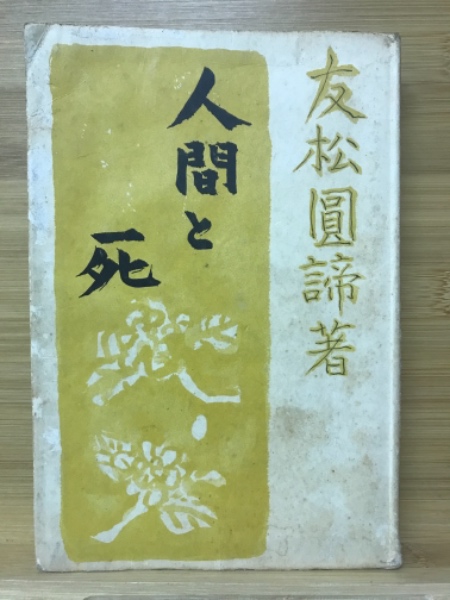 友松圓諦著
人間と
死